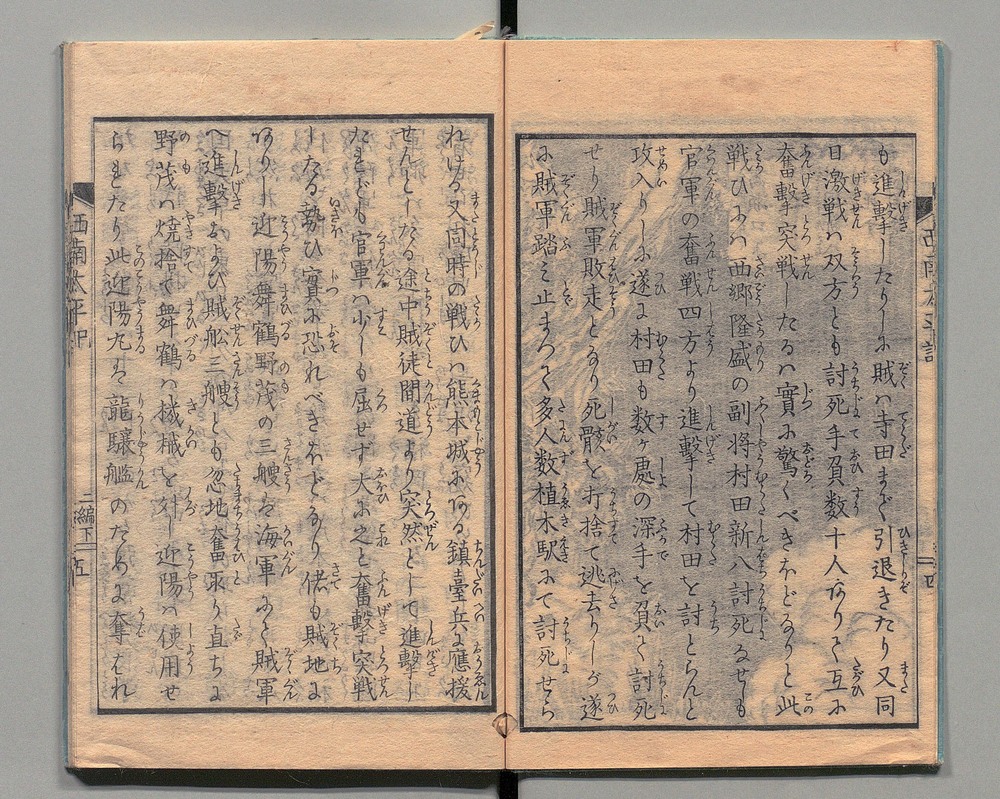 も進撃したりしに賊ハ寺田まで引退きたり又同
日激戦ハ双方とも討死手負数十人ありて互に
奮撃突戦したるハ實に驚くべきほどなりと此
戦ひにハ西郷隆盛の副将村田新八討死なせしも
官軍の奮戦四方より進撃して村田を討とらんと
攻入りしに遂に村田も数ヶ處の深手を負て討死
せり賊軍敗走となり死骸を打捨て逃去りしが遂
に賊軍踏ミ止まつて多人数植木駅にて討死せら
れける又同時の戦ひハ熊本城にある鎮臺兵に應援
せんとしたる途中賊徒間道より突然として進撃し
たれども官軍ハ少しも屈せず大に之と奮撃突戦
したる勢ひ實に恐れべきほどなり偖も賊地に
ありし迎陽舞鶴野茂の三艘を海軍にて賊軍
へ進撃および賊舩三艘とも忽地奮取り直ちに
野茂ハ焼捨て舞鶴ハ機械を外し迎陽ハ使用せ
らまたり此迎陽丸を龍驤艦のために奪はれ
西南太平記
二編下
五
西南太平記
四